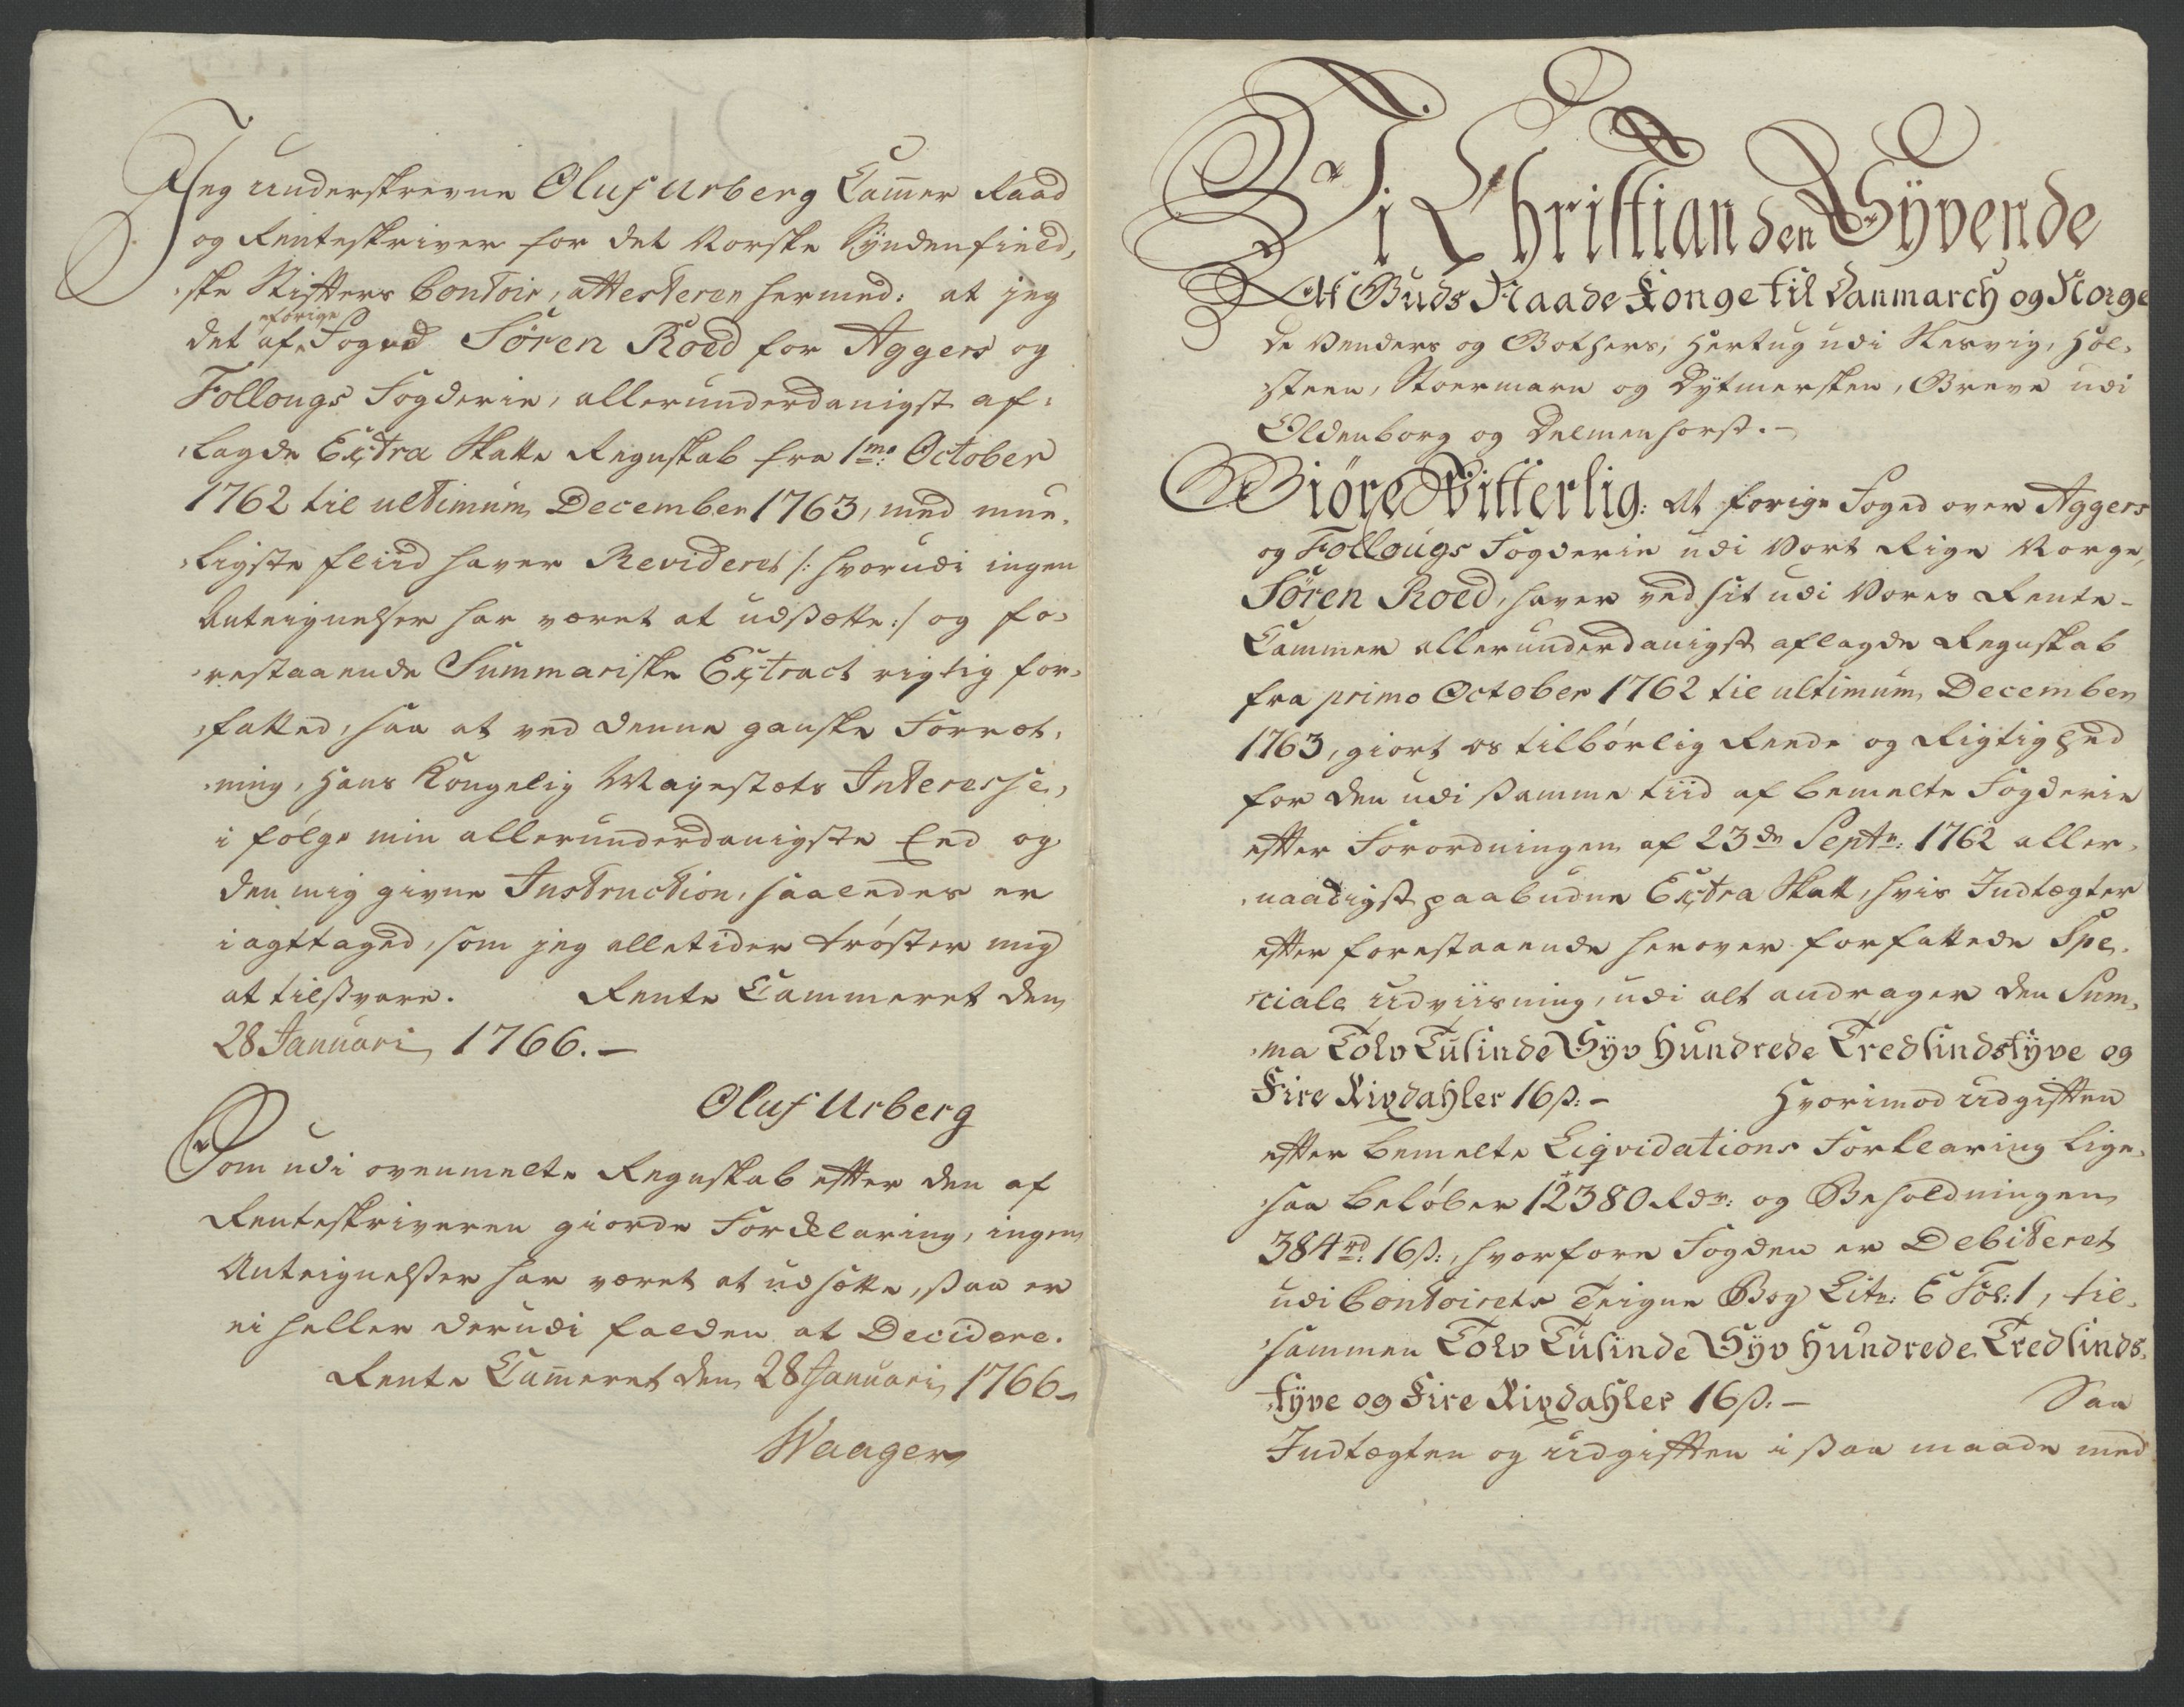 Jeg underskrevne Oluf Urberg Cam̅er Raad
og Renteskriver for det Norske Syndenfield,
ske Stifters Contoir, attesterer hermed: at jeg
det af forige Foged Sören Roed for Aggers og
Follougs Fogderie, allerunderdanigst af,
lagde Extra Skatte Regnskab fra 1mo October
1762 til ultimum December 1763, med mue,
ligste fliid haver Revideret /: hvorudi ingen
Anteignelser har været at udsætte :/ og fo,
restaaende Summariske Extract rigtig for,
fatted, saa at ved denne ganske Forræt,
ning, Hans Kongelig Mayestæts Interesse,
i fölge min allerunderdanigste Eed og
den mig givne Instruction, saaledes er
iagttaged, som jeg alletider tröster mig
at tilsvare. Rente Cammeret den
28 Januari 1766.–
Oluf Urberg
Som udi ovenmelte Regnskab efter den af
Renteskriveren giorde Forklaring, ingen
Anteignelser har været at udsætte, saa er
ei heller derudi falden at Decidere.
Rente Cam̅eret den 28 Januari 1766–
Waager
Vi Christian den Syvende
Af Guds Naade Konge til Danmarch og Norge
De Venders og Gothers, Hertug udi Slesvig, Hol,
steen, Stoermarn og Dytmersken, Greve udi
Oldenborg og Delmenhorst.–
Giöre Vitterlig: At forige Foged over Aggers
og Follougs Fogderie udi Vort Rige Norge,
Sören Roed, haver ved sit udi Vores Rente-
Cammer allerunderdanigst aflagde Regnskab
fra primo October 1762 til ultimum December
1763, giort os tilbörlig Rede og Rigtighed
for den udi samme tiid af bemelte Fogderie
efter Forordningen af 23de Septr: 1762 aller,
naadigst paabudne Extra Skatt, hvis Indtægter
efter forestaaende herover forfattede Spe,
ciale Udviisning, udi alt andrager den Sum,
ma Tolv Tusinde Syv Hundrede Tredsindstyve og
Fire Rixdahler 16 ß:– Hvorimod Udgiften
efter bemelte Liqvidations Forklaring lige,
saa belöber 12380 Rdr: og Beholdningen
384 rd: 16 ß:, hvorfore Fogden er Debiteret
udi Contoirets Teigne Bog Litr: C Fol: 1, til,
sammen Tolv Tusinde Syv Hundrede Tredsinds,
tyve og Fire Rixdahler 16 ß:– Saa
Indtægten og Udgiften i saa maade med